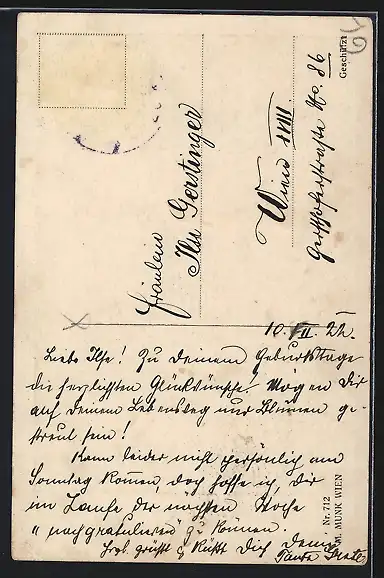 Fräulein
Ilse Gerstinger
Wien XVIII
Gersthoferstraße No. 86
Geschützt
10. VII. 22.
Liebe Ilse! Zu Deinem Geburtstage
die herzlichsten Glückwünsche! Mögen Dir
auf Deinem Lebensweg nur Blumen ge-
streut sein!
Kann leider nicht persönlich am
Sonntag kommen, doch hoffe ich, Dir
im Laufe der nächsten Woche
"nachgratulieren" zu können.
Hrzl. grüßt & küßt Dich Deine
Tante Grete
Nr. 712
M. MUNK WIEN